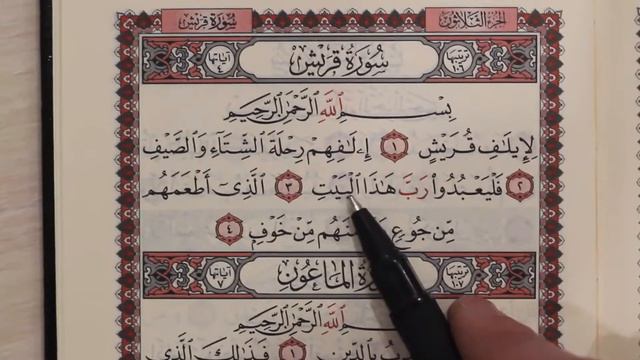 الجزء الثلاثون
سورة قريش
ترتيبها ١٠٦
سُورَةُ قُرَيْشٍ
آياتها ٤
بِسْمِ اللَّهِ الرَّحْمَٰنِ الرَّحِيمِ
لِإِيلَافِ قُرَيْشٍ ١ إِۦلَافِهِمْ رِحْلَةَ الشِّتَاءِ وَالصَّيْفِ
٢ فَلْيَعْبُدُوا رَبَّ هَذَا الْبَيْتِ ٣ الَّذِي أَطْعَمَهُم
مِّن جُوعٍ مِّنْ خَوْفٍ ٤
ترتيبها ١٠٧
الْمَاعُونِ
آياتها ٧
اللَّهِ الرَّحْمَٰنِ الرَّحِيمِ
بِالدِّينِ ١ فَذَٰلِكَ الَّذِي